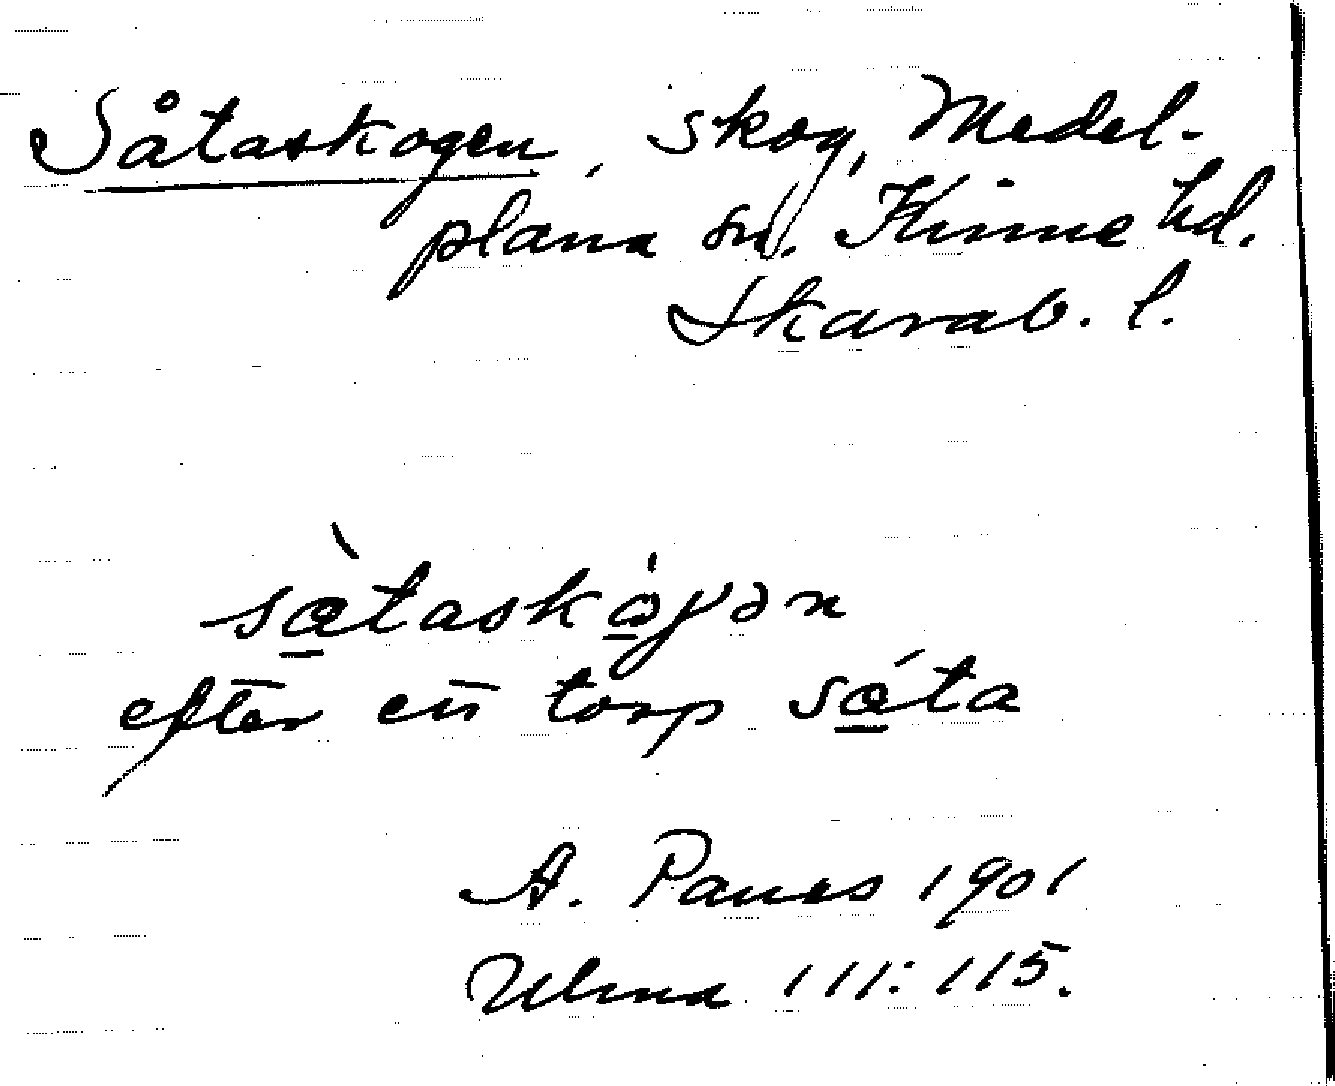 Såtaskogen, skog, Medel-
plana sn. Kinne hd.
Skarab. l.
sàtaskǫ̀γən
efter en torp sáta
A. Paues 1901
Ulma 111:115.